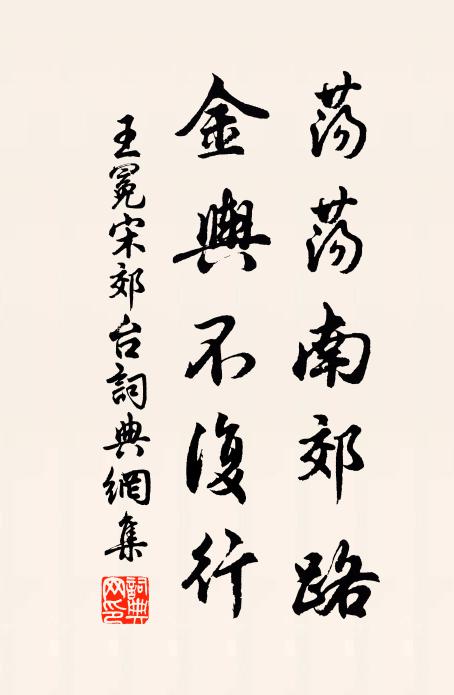 荡荡南郊路
金輿不復行
王冕宋郊台詞典網集
詞典网印